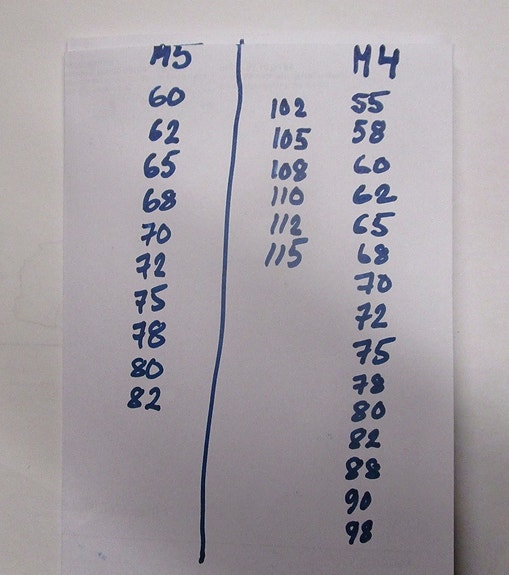 M5
60
62
65
68
70
72
75
78
80
82
M4
102
105
108
110
112
115
55
58
60
62
65
68
70
72
75
78
80
82
88
90
98